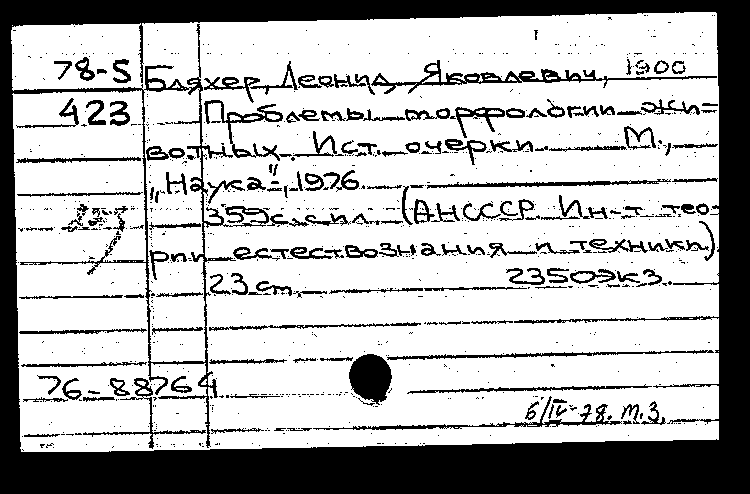 78-5 Бляхер, Леонид Яковлевич, 1900
423 Проблемы морфологии жи-
вотных. Ист. очерки М.,
"Наука", 1976.
359с. с ил. (АН СССР Ин-т тео-
рии естествознания и техники)
23 cm. 2350экз.
76-88764
6/IV-78. т.З.